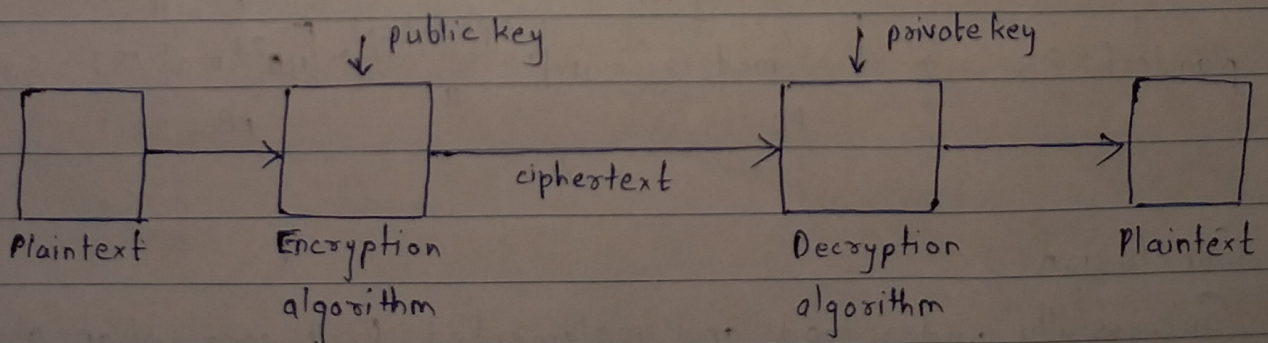 public key
private key
ciphertext
Plaintext
Encryption
algorithm
Decryption
algorithm
Plaintext